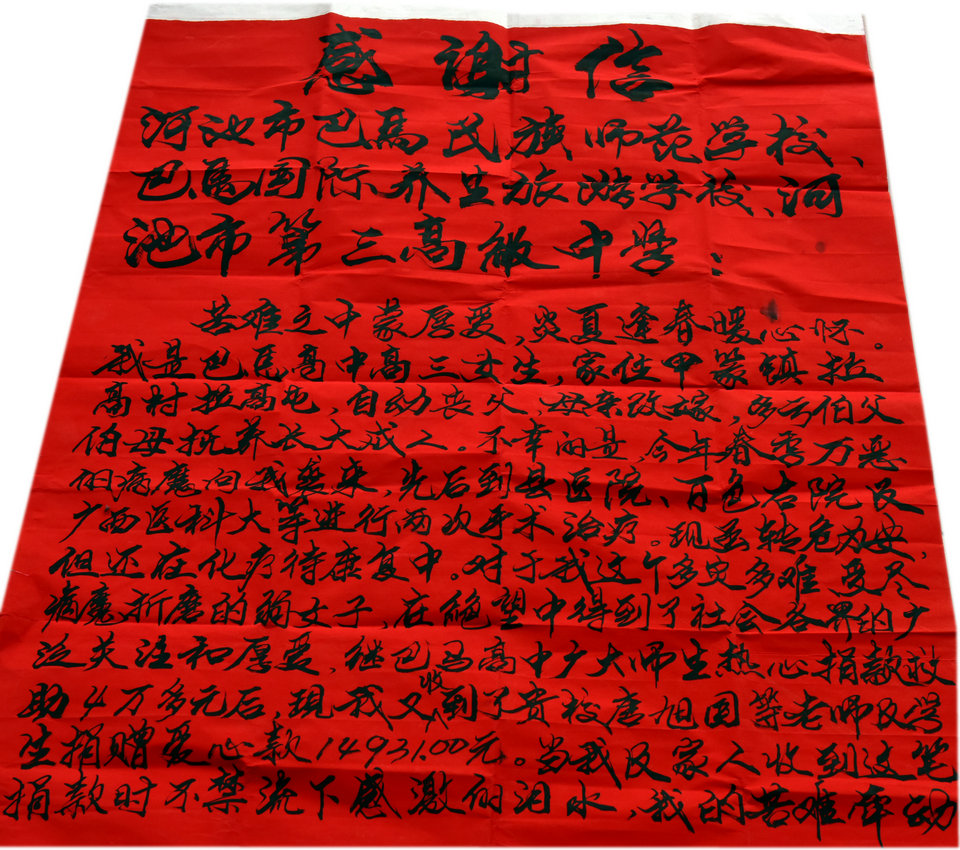 感谢信
河池市巴马民族师范学校、
巴马国际养生旅游学校、河
池市第三高级中学：
苦难之中蒙厚爱，炎夏逢春暖心怀。
我是巴马高中高三女生，家住甲篆镇拉
高村拉高屯，自幼丧父，母亲改嫁，多亏伯父
伯母抚养长大成人。不幸的是，今年春季万恶
的病魔向我袭来，先后到县医院、百色右院及
广西医科大等进行两次手术治疗。现虽转危为安，
但还在化疗待康复中。对于我这个多灾多难受尽
病魔折磨的弱女子，在绝望中得到了社会各界的广
泛关注和厚爱，继巴马高中广大师生热心捐款救
助4万多元后，现我又收到了贵校唐旭国等老师及学
生捐赠爱心款14931.00元。当我及家人收到这笔
捐款时不禁流下感激的泪水，我的苦难牵动